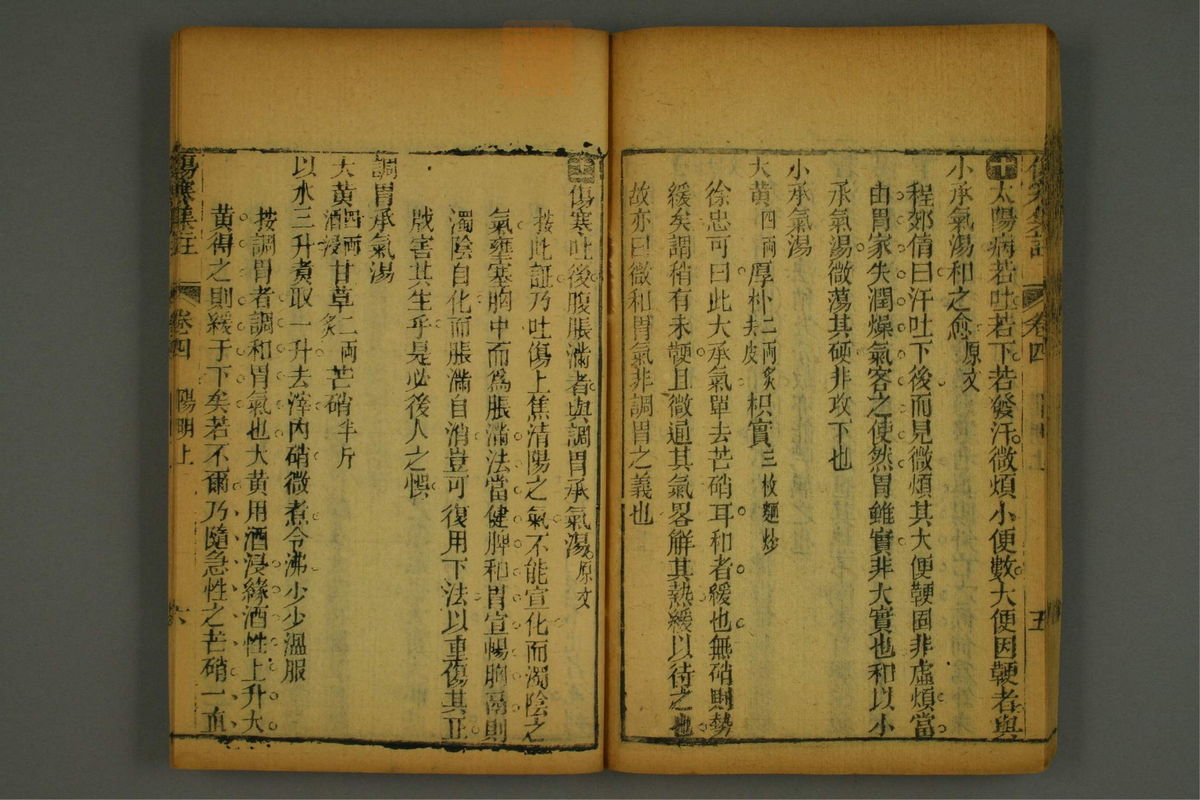 傷寒集註 卷四 五
太陽病若吐若下若發汗微煩小便數大便因鞕者與
小承氣湯和之愈原文
程郊倩曰汗吐下後而見微煩其大便鞕固非虛煩當
由胃家失潤燥氣客之使然胃雖實非大實也和以小
承氣湯微蕩其硬非攻下也
小承氣湯
大黃四両厚朴二両炙去皮枳實三枚麵炒
徐忠可曰此大承氣單去芒硝耳和者緩也無硝則勢
緩矣調稍有未鞕且微通其氣畧解其熱緩以待之也
故亦曰微和胃氣非調胃之義也
傷寒吐後腹脹滿者與調胃承氣湯原文
按此証乃吐傷上焦清陽之氣不能宣化而濁陰之
氣壅塞胸中而為脹滿法當健脾和胃宣暢胸膈則
濁陰自化而脹滿自消豈可復用下法以重傷其正
戕害其生乎是必後人之悞
調胃承氣湯
大黃四両酒浸甘草二両炙芒硝半斤
以水三升煑取一升去滓內硝微煮令沸少少溫服
按調胃者調和胃氣也大黃用酒浸緣酒性上升大
黃得之則緩于下矣若不爾乃隨急性之芒硝一直
傷寒集註 卷四 陽明上 六